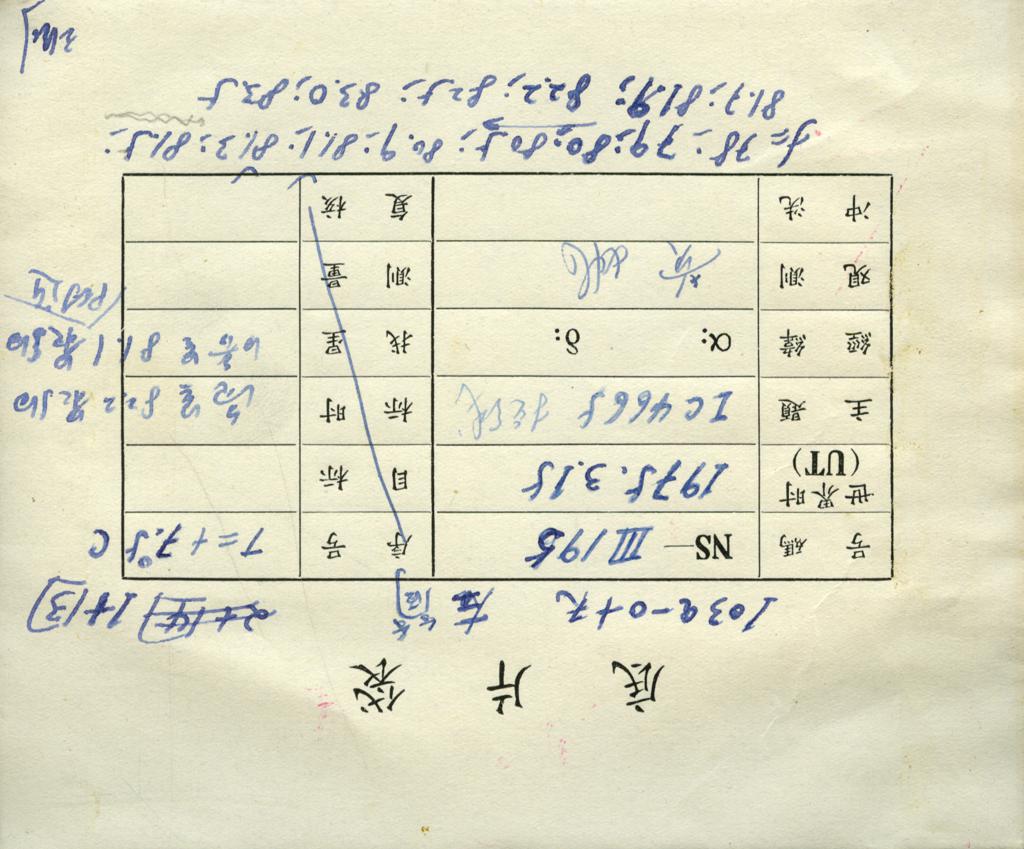 底片袋
103a-0+无 左 2+14 1+13
号碼 NS—III195 序号 T=+7.5°C
世界时(UT) 1975.3.15 目标
主題 IC4665 标时 亮星 82.2 最好
經緯 α: δ: 找星 暗星 81.1 最好
观测 测量
冲洗 复核
f=78; 79; 80; 80.5; 80.9; 81.1; 81.3; 81.5;
81.7; 81.9; 82.2; 82.5; 83.0; 83.5